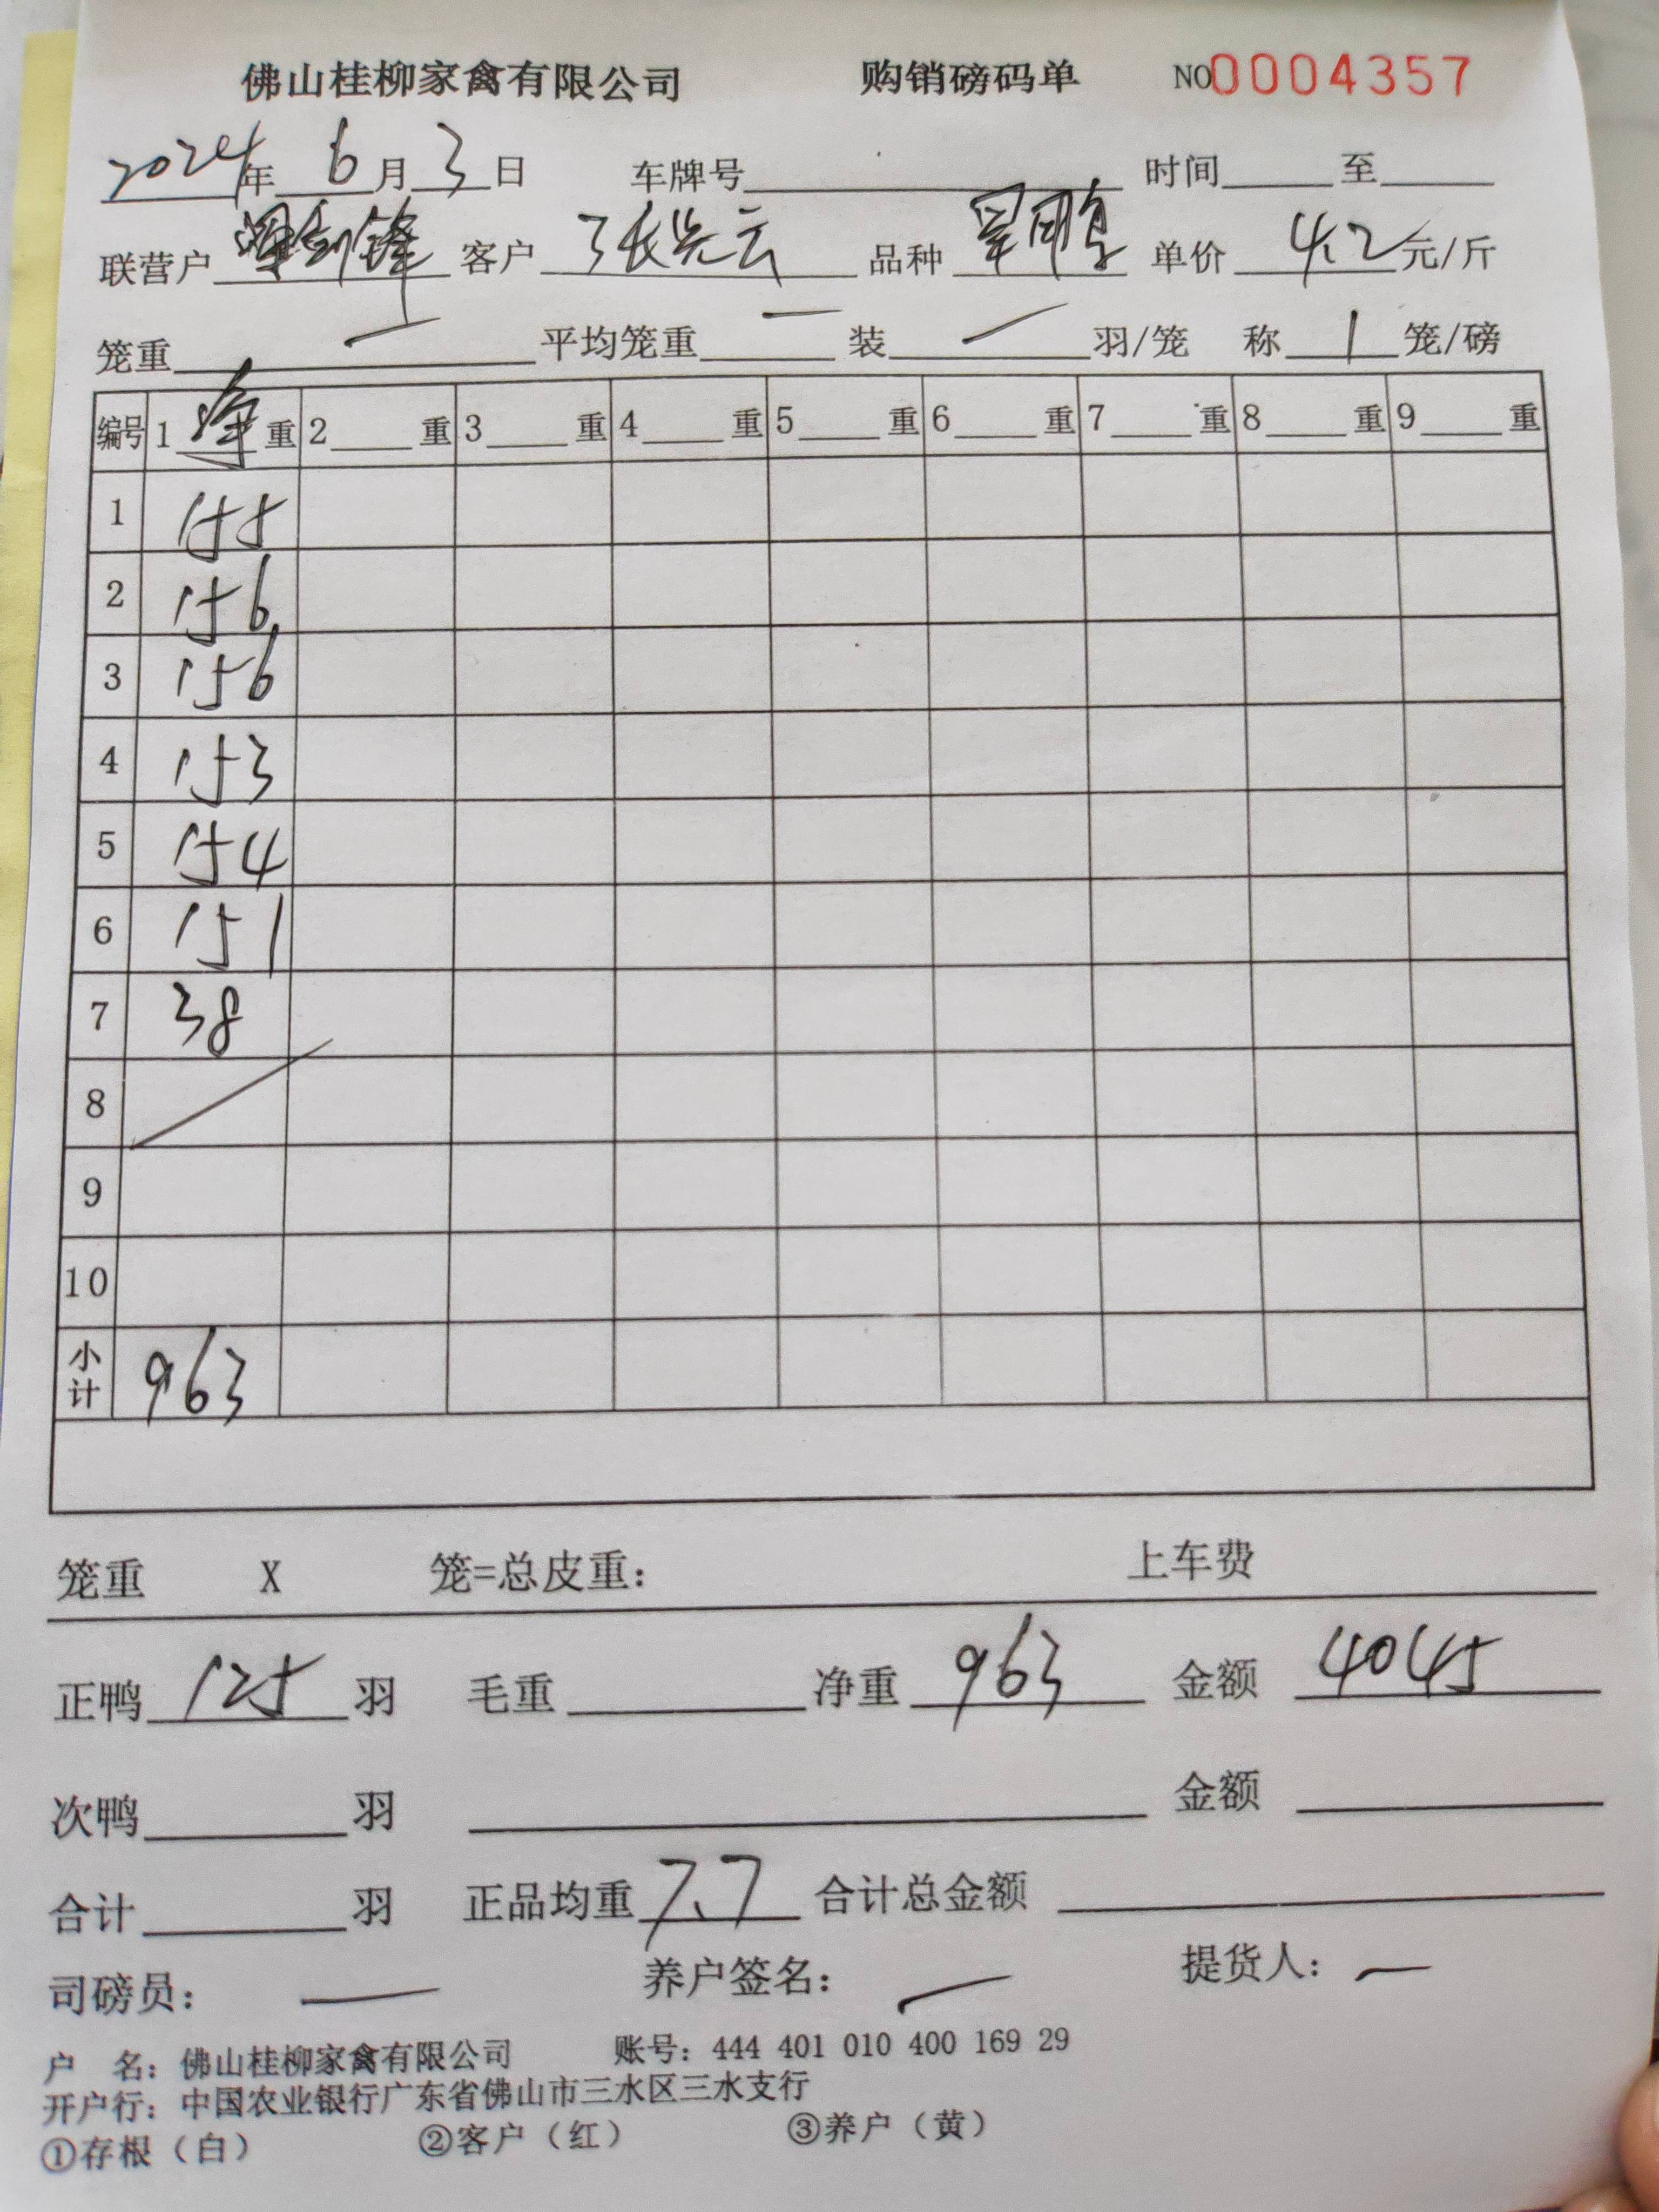 佛山桂柳家禽有限公司 购销磅码单 NO0004357
2024年 6月3日 车牌号 时间 至
联营户 锋 客户 张先云 品种 单价 4.2元/斤
笼重 一 平均笼重 一 装 一 羽/笼 称 1 笼/磅
编号 1 净 重 2 重 3 重 4 重 5 重 6 重 7 重 8 重 9 重
1 155
2 156
3 156
4 153
5 154
6 151
7 38
8
9
10
小计 963
笼重 X 笼=总皮重: 上车费
正鸭 125 羽 毛重 净重 963 金额 4045
次鸭 羽 金额
合计 羽 正品均重 7.7 合计总金额
司磅员: 一 养户签名: 一 提货人: 一
户 名: 佛山桂柳家禽有限公司 账号: 444 401 010 400 169 29
开户行: 中国农业银行广东省佛山市三水区三水支行
①存根（白） ②客户（红） ③养户（黄）